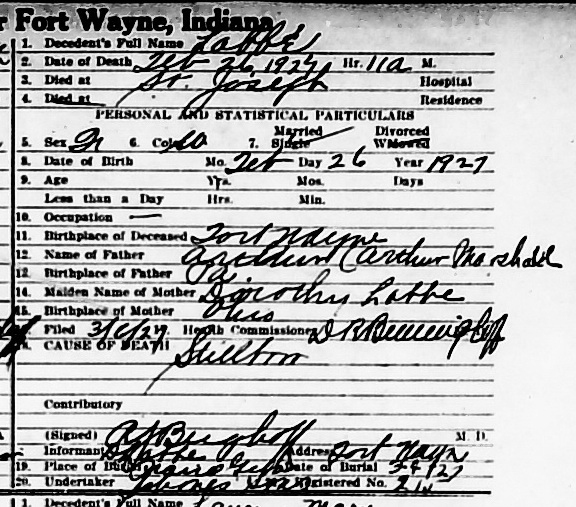 r Fort Wayne, Indiana
1. Decedent's Full Name Labbe
2. Date of Death Feb 26, 1927 Hr. 11a M.
3. Died at St. Joseph Hospital
4. Died at Residence
PERSONAL AND STATISTICAL PARTICULARS
Married Divorced
5. Sex 6. Color 7. Single Widowed
8. Date of Birth Mo. Feb Day 26 Year 1927
9. Age Yrs. Mos. Days
Less than a Day Hrs. Min.
10. Occupation —
11. Birthplace of Deceased Fort Wayne
12. Name of Father (Arthur Marshall
13. Birthplace of Father
14. Maiden Name of Mother Dorothy Labbe
15. Birthplace of Mother Ohio
Filed Health Commissioner
CAUSE OF DEATH Stillborn
Contributory
(Signed) M. D.
Informant Address Fort Wayne
19. Place of Burial Date of Burial
20. Undertaker Registered No.
1. Decedent's Full Name